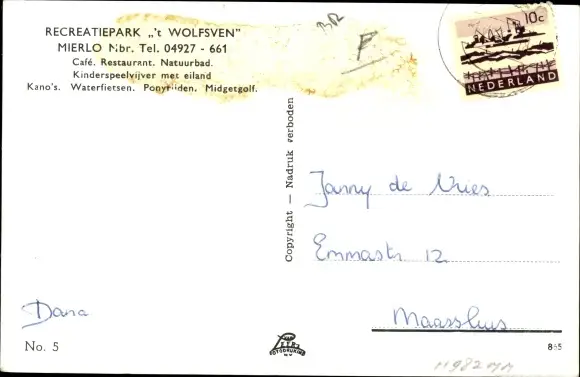 RECREATIEPARK „'t WOLFSVEN"
MIERLO Nbr. Tel. 04927 - 661
Café. Restaurant. Natuurbad.
Kinderspeelvijver met eiland
Kano's. Waterfietsen. Ponyrijden. Midgetgolf.
BR
F
10c
NEDERLAND
Copyright — Nadruk verboden
Janny de Vries
Emmastr 12
Maassluis
Dana
No. 5
VAN LEER'S
FOTODRUKIND.
N.V.
865
11982MM